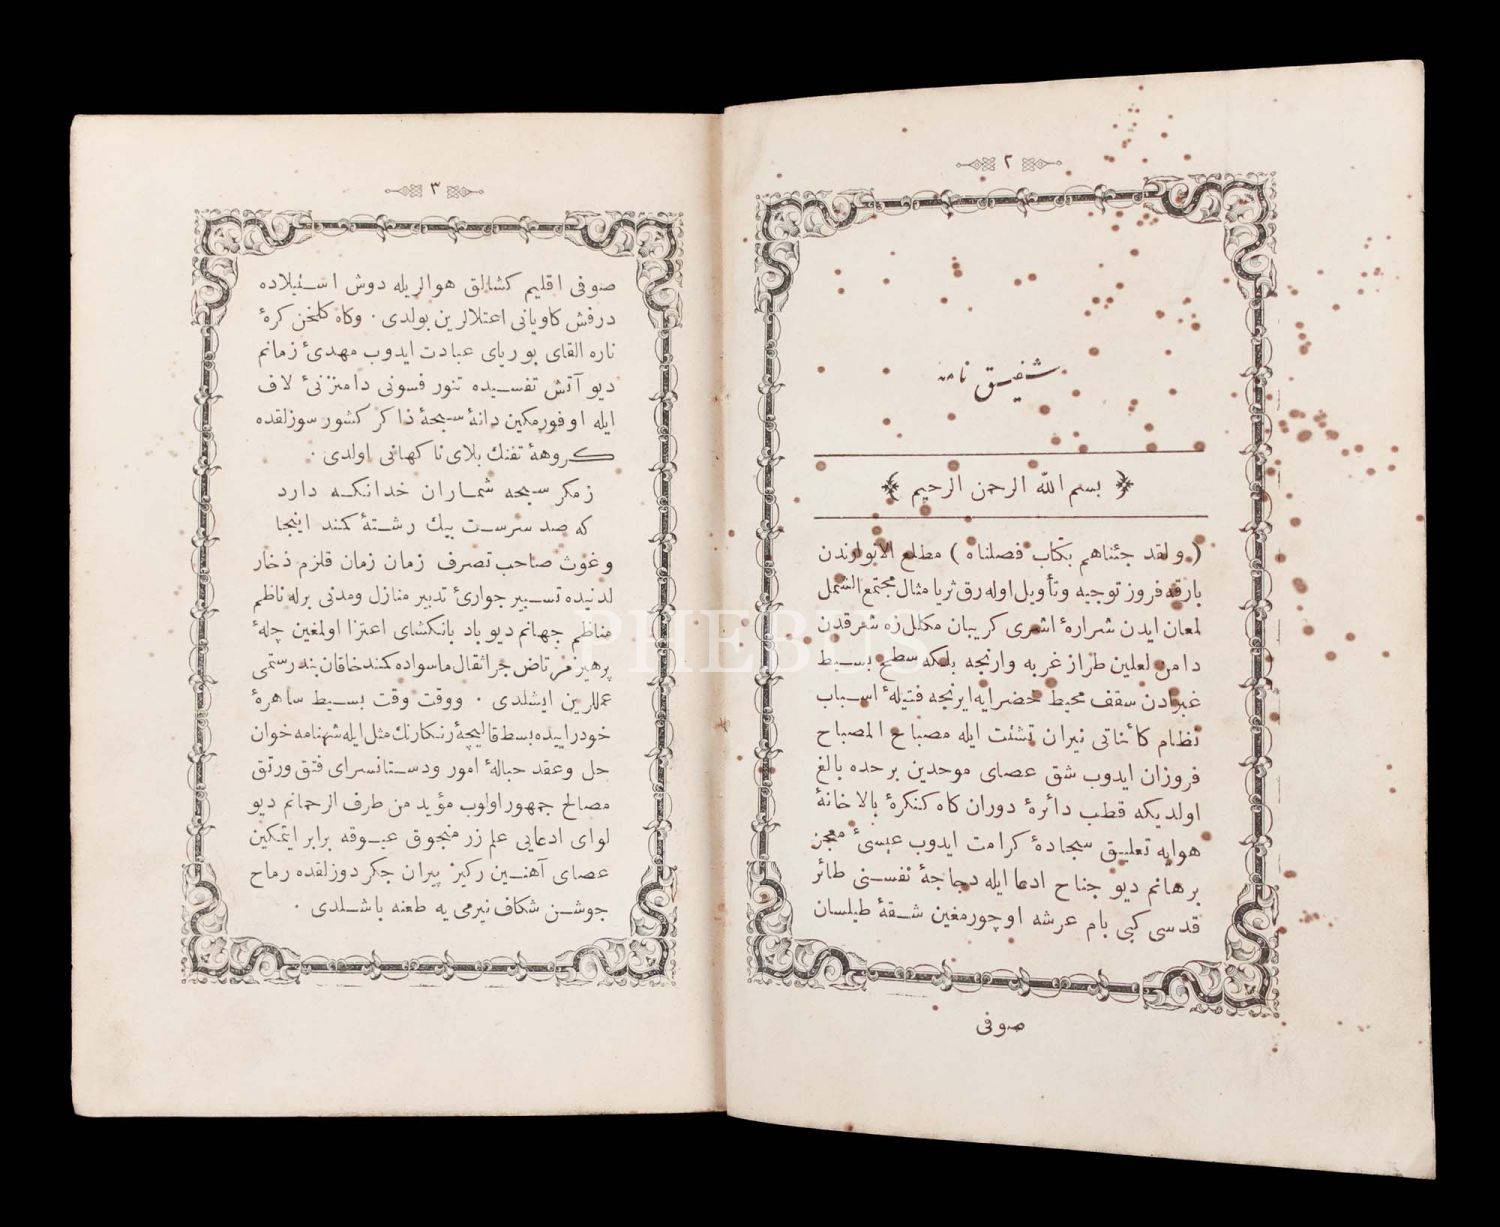 ٢
شفيق نامه
بسم الله الرحمن الرحيم
( ولقد جئناهم بكتاب فصلناه ) مطلع الانوارندن
بارقه فروز توجيه وتأويل اوله رق ثريا مثال مجتمع الشمل
لمعان ايدن شرارهٔ اشرى كريبان مكلل زه شرقدن
دامن لعلين طراز غربه وارنجه بلكه سطح بسيط
غبرادن سقف محيط خضرايه ايرنجه فتيلهٔ اسباب
نظام كائناتى نيران تشتت ايله مصباح المصباح
فروزان ايدوب شق عصاى موحدين بر حده بالغ
اولديكه قطب دائرهٔ دوران كاه كنكرهٔ بالاخانهٔ
هوايه تعليق سجادهٔ كرامت ايدوب عيسئ معجز
برهانم ديو جناح ادعا ايله دجاجهٔ نفسنى طائر
قدسى كبى بام عرشه اوچورمغين شقهٔ طيلسان
صوفى
٣
صوفى اقليم كشالق هوالريله دوش استيلاده
درفش كاويانى اعتلالرين بولدى . وكاه كلخن كرهٔ
ناره القاى بورياى عبادت ايدوب مهدئ زمانم
ديو آتش تفسيده تنور فسونى دامنزنئ لاف
ايله اوفورمكين دانهٔ سبحهٔ ذاكر كشور سوزلقده
كروههٔ تفنك بلاى ناكهانى اولدى .
زمكر سبحه شماران خدا نكه دارد
كه صد سرست بيك رشتهٔ كمند اينجا
وغوث صاحب تصرف زمان زمان قلزم ذخار
لدنيده تسيير جوارئ تدبير منازل ومدنى برله ناظم
مناظم جهانم ديو باد بانكشاى اعتزا اولمغين چلهٔ
پرهيز مرتاض جر اثقال ماسواده كمند خاقان بند رستمى
عمللرين ايشلدى . ووقت وقت بسيط ساهرهٔ
خودراييده بسط قاليچهٔ رنكارنك مثل ايله شهنامه خوان
حل وعقد حبالهٔ امور ودستانسراى فتق ورتق
مصالح جمهور اولوب مؤيد من طرف الرحمانم ديو
لواى ادعايى علم زر منجوق عيوقه برابر ايتمكين
عصاى آهنين ركيز پيران جكر دوزلقده رماح
جوشن شكاف نيرمى يه طعنه باشلدى .
PHEBUS